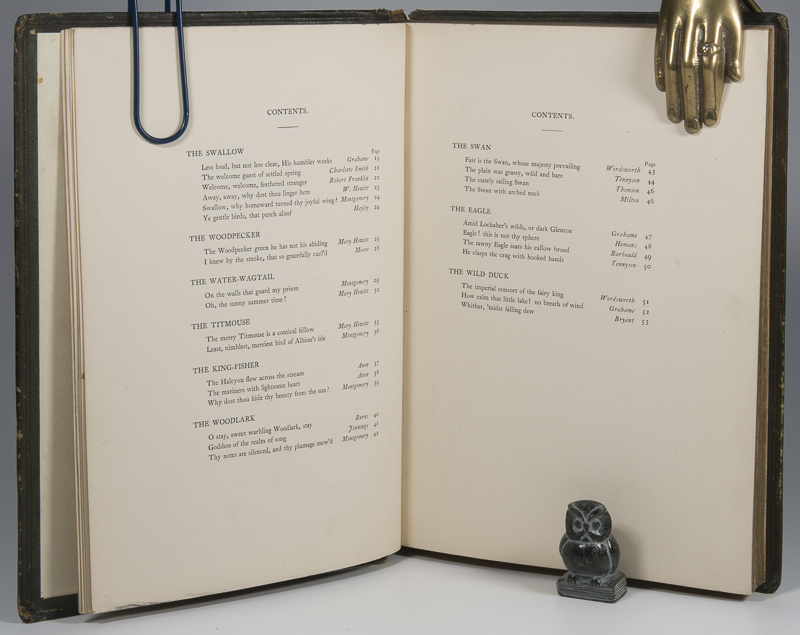 CONTENTS.
Page
THE SWALLOW
Less loud, but not less clear, His humbler works Grahame 19
The welcome guest of settled spring Charlotte Smith 21
Welcome, welcome, feathered stranger Robert Franklin 22
Away, away, why dost thou linger here W. Howitt 23
Swallow, why homeward turned thy joyful wing? Montgomery 24
Ye gentle birds, that perch aloof Hayley 24
THE WOODPECKER
The Woodpecker green he has not his abiding Mary Howitt 25
I knew by the smoke, that so gracefully curl'd Moore 28
THE WATER-WAGTAIL
On the walls that guard my prison Montgomery 29
Oh, the sunny summer time! Mary Howitt 32
THE TITMOUSE
The merry Titmouse is a comical fellow Mary Howitt 35
Least, nimblest, merriest bird of Albion's isle Montgomery 36
THE KING-FISHER
The Halcyon flew across the stream Anon 37
The mariners with lightsome heart Anon 38
Why dost thou hide thy beauty from the sun? Montgomery 39
THE WOODLARK
O stay, sweet warbling Woodlark, stay Burns 40
Goddess of the realm of song Jennings 41
Thy notes are silenced, and thy plumage mew'd Montgomery 42
CONTENTS.
THE SWAN
Page
Fair is the Swan, whose majesty prevailing Wordsworth 43
The plain was grassy, wild and bare Tennyson 44
The stately sailing Swan Thomson 46
The Swan with arched neck Milton 46
THE EAGLE
Amid Lochaber's wilds, or dark Glencoe Grahame 47
Eagle! this is not thy sphere Hemans 48
The tawny Eagle seats his callow brood Barbauld 49
He clasps the crag with hooked hands Tennyson 50
THE WILD DUCK
The imperial consort of the fairy king Wordsworth 51
How calm that little lake! no breath of wind Grahame 52
Whither, 'midst falling dew Bryant 53